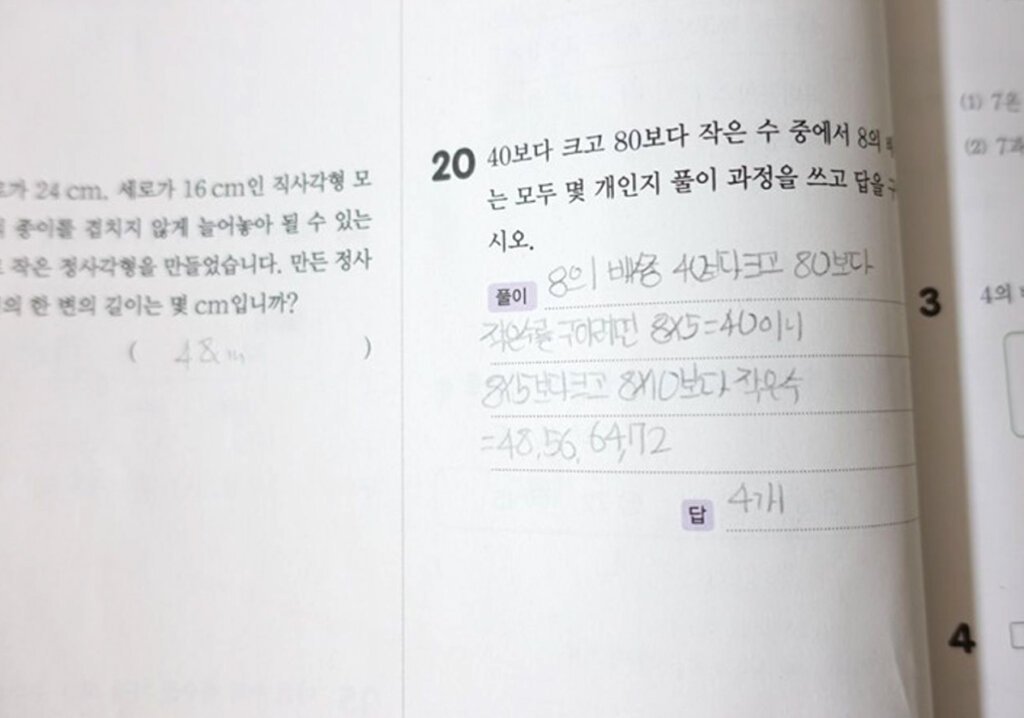 가 24 cm, 세로가 16 cm인 직사각형 모
종이를 겹치지 않게 늘어놓아 될 수 있는
작은 정사각형을 만들었습니다. 만든 정사
의 한 변의 길이는 몇 cm입니까?
( 48 )
20 40보다 크고 80보다 작은 수 중에서 8의
는 모두 몇 개인지 풀이 과정을 쓰고 답을 구
시오.
풀이 8의 배수중 40보다크고 80보다
작은수를 구하려면 8X5=40이니
8X5보다크고 8X10보다 작은수
=48,56,64,72
답 4개
(1) 7은
(2) 7과
3 4의
4